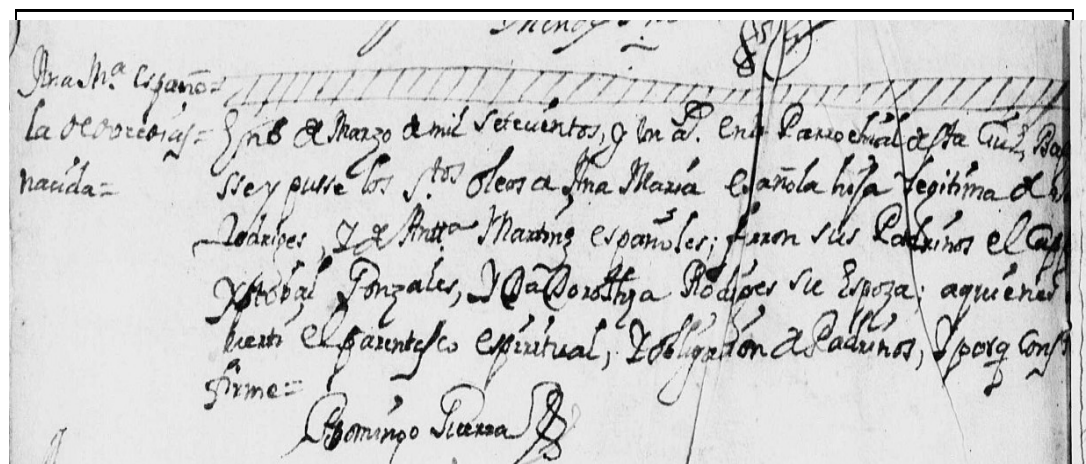 Ana Mª Españo=
la de dore dias=
nacida=
En 6 de Marzo de mil setecientos, y un as. en la Parrochial de sta Ciud, Bap
sse y pusse los stos oleos a Ana Maria española hija legitima de
Rodriges, Y de Antta Martins españoles; fueron sus Padrinos el Capp
Xptobal Gonzales, Y Da Dorotthea Rodriges su Espoza; aquienes
buerti el parentesco espiritual, Y obligacion de Padrinos, Y porq cons
firme=
Domingo Guerra